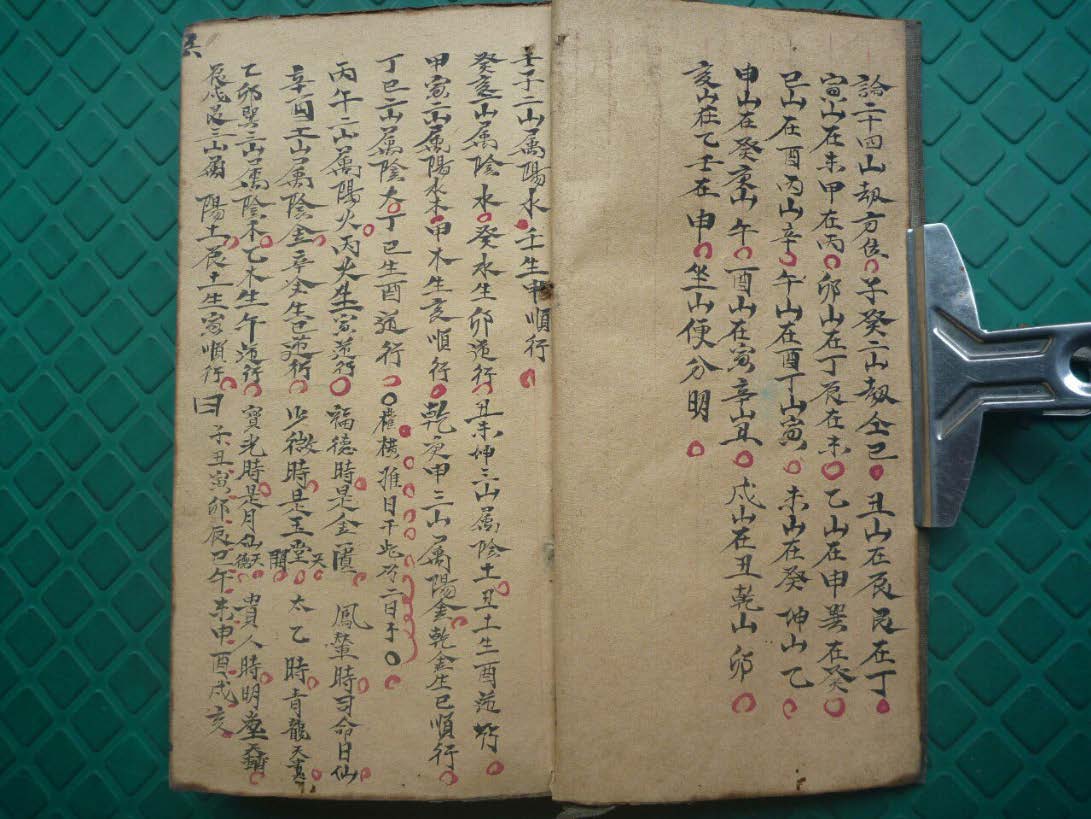 論二十四山劫方位 子癸二山劫仝巳 丑山在辰艮在丁
寅山在未甲在丙 卯山在丁辰在未 乙山在申巽在癸
巳山在酉丙山辛 午山在酉丁山寅 未山在癸坤山乙
申山在癸庚山午 酉山在寅辛山丑 戍山在丑乾山卯
亥山在乙壬在申 坐山便分明
壬子二山属陽水 壬生申順行
癸亥二山属陰水 癸水生卯逆行 丑未坤三山属陰土 丑土生酉逆行
甲寅二山属陽木 甲木生亥順行 乾庚申三山属陽金 乾金生巳順行
丁巳二山属陰火 丁巳生酉逆行 日子
丙午二山属陽火 丙火生寅逆行 福德時是金匱 鳳輦時司命日仙
辛酉二山属陰金 辛金生巳逆行 少微時是玉堂天開 太乙時青龍天
乙卯巽三山属陰木 乙木生午逆行 寶光時是月仙天德 貴人時明堂
辰戌艮三山属陽土 辰土生寅順行 曰子丑寅卯辰巳午未申酉戍亥